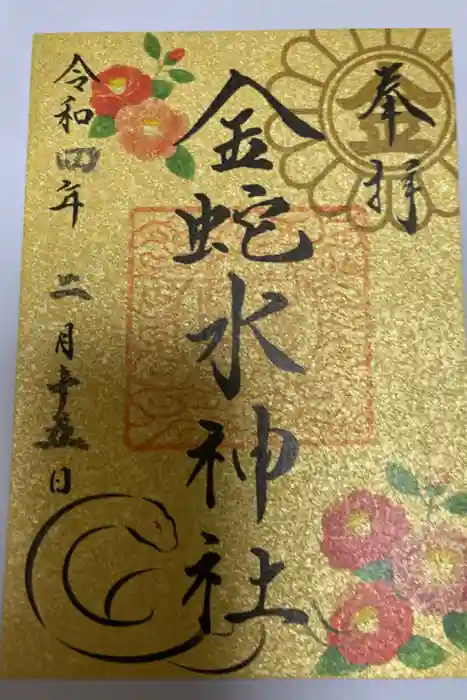 奉拝
金
金蛇水神社
令和四年
二月十五日